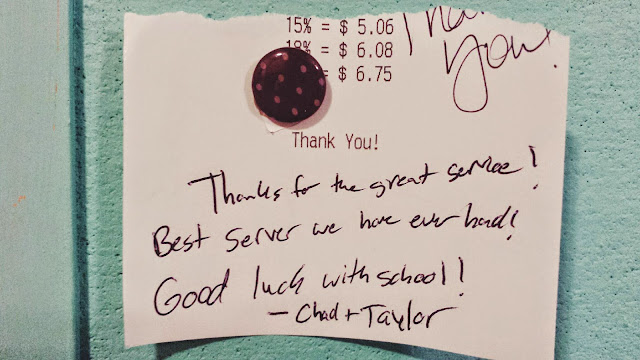 15% = $ 5.06
Thank
18% = $ 6.08
you!
= $ 6.75
Thank You!
Thanks for the great service!
Best server we have ever had!
Good luck with school!
- Chad + Taylor